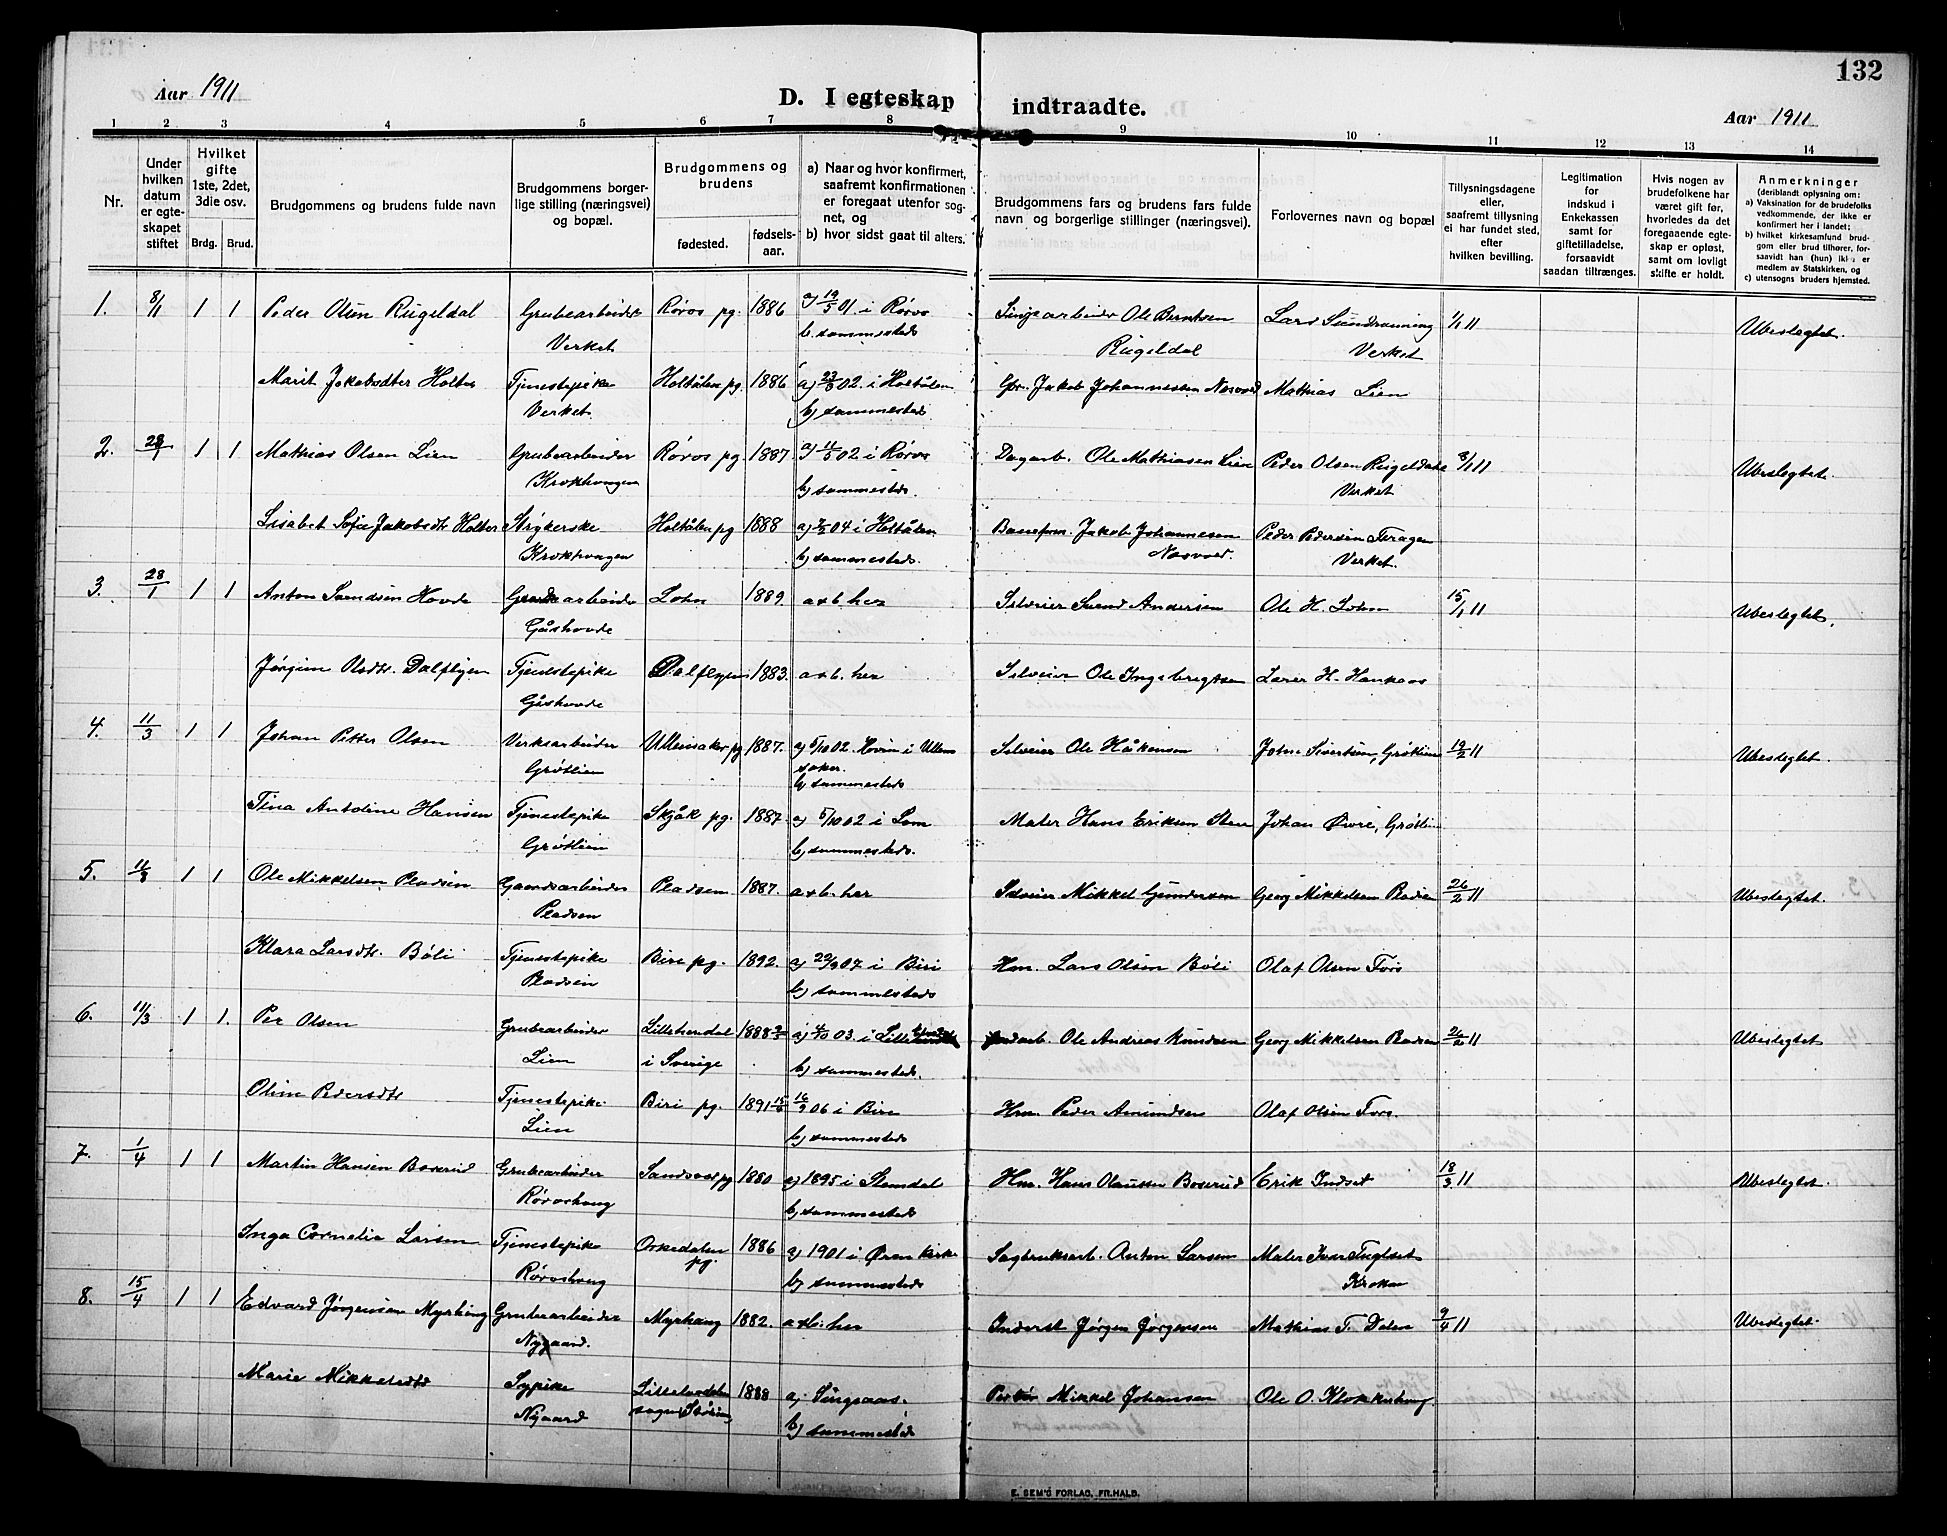 132
Aar 1911
D. I egteskap indtraadte.
Aar 1911
1 2 3 4 5 6 7 8 9 10 11 12 13 14
Nr.
Under hvilken datum er egteskapet stiftet
Hvilket gifte 1ste, 2det, 3die osv.
Brdg. Brud.
Brudgommens og brudens fulde navn
Brudgommens borgerlige stilling (næringsvei) og bopæl.
Brudgommens og brudens
fødested.
fødselsaar.
a) Naar og hvor konfirmert, saafremt konfirmationen er foregaat utenfor sognet, og
b) hvor sidst gaat til alters.
Brudgommens fars og brudens fars fulde navn og borgerlige stillinger (næringsvei).
Forlovernes navn og bopæl
Tillysningsdagene eller, saafremt tillysning ei har fundet sted, efter hvilken bevilling.
Legitimation for indskud i Enkekassen samt for giftetilladelse, forsaavidt saadan tiltrænges.
Hvis nogen av brudefolkene har været gift før, hvorledes da det foregaaende egteskap er opløst, samt om lovligt skifte er holdt.
Anmerkninger
(deriblandt oplysning om:
a) Vaksination for de brudefolks vedkommende, der ikke er konfirmert her i landet;
b) hvilket kirkesamfund brudgom eller brud tilhører, forsaavidt han (hun) ikke er medlem av Statskirken, og
c) utensogns bruders hjemsted.
1. 8/1 1 1 Peder Olsen Rugeldal Grubearbeider Røros pg. 1886 a) 19/5 01 i Røros Ole Berntsen Lars Sundrønning 1/1 11 Ubeslegtet.
Verket b. sammesteds Rugeldal Verket
Marit Jakobsdter Holter Tjenestepike Holtålen pg. 1886 a) 02. i Holtålen Gbr. Jakob Johannessen Mathias Lien
Verket. b) sammesteds
2. 28/1 1 1 Mathias Olsen Lien Grubearbeider Røros pg. 1887. a) 02 i Røros Dagarb. Ole Mathiasen Lien Peder Olsen Rugeldal 8/1 11 Ubeslegtet.
Krokhougen b) sammesteds. Verket
Lisabet Sofie Jakobsdtr Holter Strykerske Holtålen pg 1888 a) 04 i Holtålen Jakob Johannesen Peder Pedersen Feragen
Krokhougen b) sammesteds. Verket.
3. 28/1 1 1 Anton Svendsen Hovde Lohn 1889. a+b. her Selveier Svend Andersen Ole H. Lohn 15/1 11 Ubeslegtet.
Gåshovde
Jørgine Olsdtr. Dalflyen Tjenestepike Dalflyen 1883. a+b. her Selveier Ole Ingebrigtsen H.
Gåshovde
4. 11/3 1 1 Johan Petter Olsen Verksarbeider Ullensaker pg 1887. a) 5/10 02. Hovin i Ullensaker. Selveier Ole Håkensen John Sivertsen, Grøtlien 19/2 11 Ubeslegtet.
Grøtlien b) sammesteds
Tina Antoline Hansen Tjenestepike Skjåk pg. 1887. a) 5/10 02 i Lom Maler Hans Eriksen Johan Øvre, Grøtlien
Grøtlien b) sammesteds.
5. 11/3 1 1 Ole Mikkelsen Pladsen Gaardsarbeider Pladsen 1887. a+b. her Selveier Mikkel Gundersen Georg Mikkelsen Pladsen 26/2 11 Ubeslegtet.
Pladsen
Klara Larsdtr. Bøli Tjenestepike Biri pg. 1892. a) 07 i Biri Hm. Lars Olsen Bøli Olaf Olsen Fors
Pladsen b) sammesteds
6. 11/3 1 1. Per Olsen Grubearbeider Lilleherdal 1888 a) 03. i Jordarb. Ole Andreas Knudsen Georg Mikkelsen Pladsen 26/2 11 Ubeslegtet
Lien i Sverige b) sammesteds.
Oline Pedersdtr Tjenestepike Biri pg. 1891 06 i Biri Hm. Peder Amundsen Olaf Olsen Fors.
Lien b) sammesteds
7. 1/4 1 1 Martin Hansen Boserud Grubearbeider 1880 a) 1895 i Hm. Hans Olaussen Boserud Erik Indset 18/3 11 Ubeslegtet.
Røroshaug b) sammesteds
Inga Cornelia Larsen Tjenestepike Orkedalen pg. 1886 a) 1901 i kirke Sagbruksarb. Anton Larsen Maler Ivar Fuglset
Røroshaug b) sammesteds Krokan
8. 15/4 1 1 Edvard Jørgensen Myrhaug Grubearbeider Myrhaug 1882. a+b. her Inderst Jørgen Jørgensen Mathias T. Dalen 9/4 11 Ubeslegtet.
Nygaard.
Marie Mikkelsdtr Sypike 1888 a) Singsaas. Mikkel Johansen Ole O. Klokkerhaug.
Nygaard b) sammesteds
E. SEM'S FORLAG, FR.HALD.